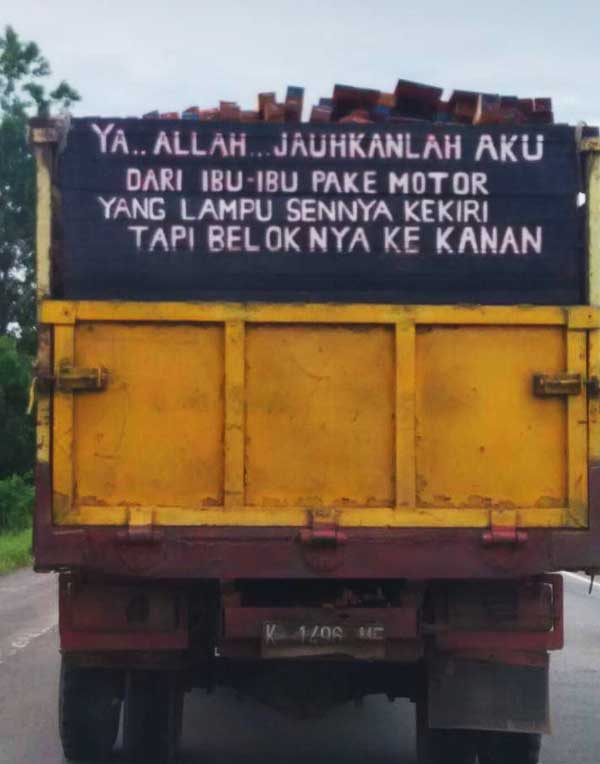 YA.. ALLAH... JAUHKANLAH AKU
DARI IBU-IBU PAKE MOTOR
YANG LAMPU SENNYA KEKIRI
TAPI BELOKNYA KE KANAN
K 1496 ME